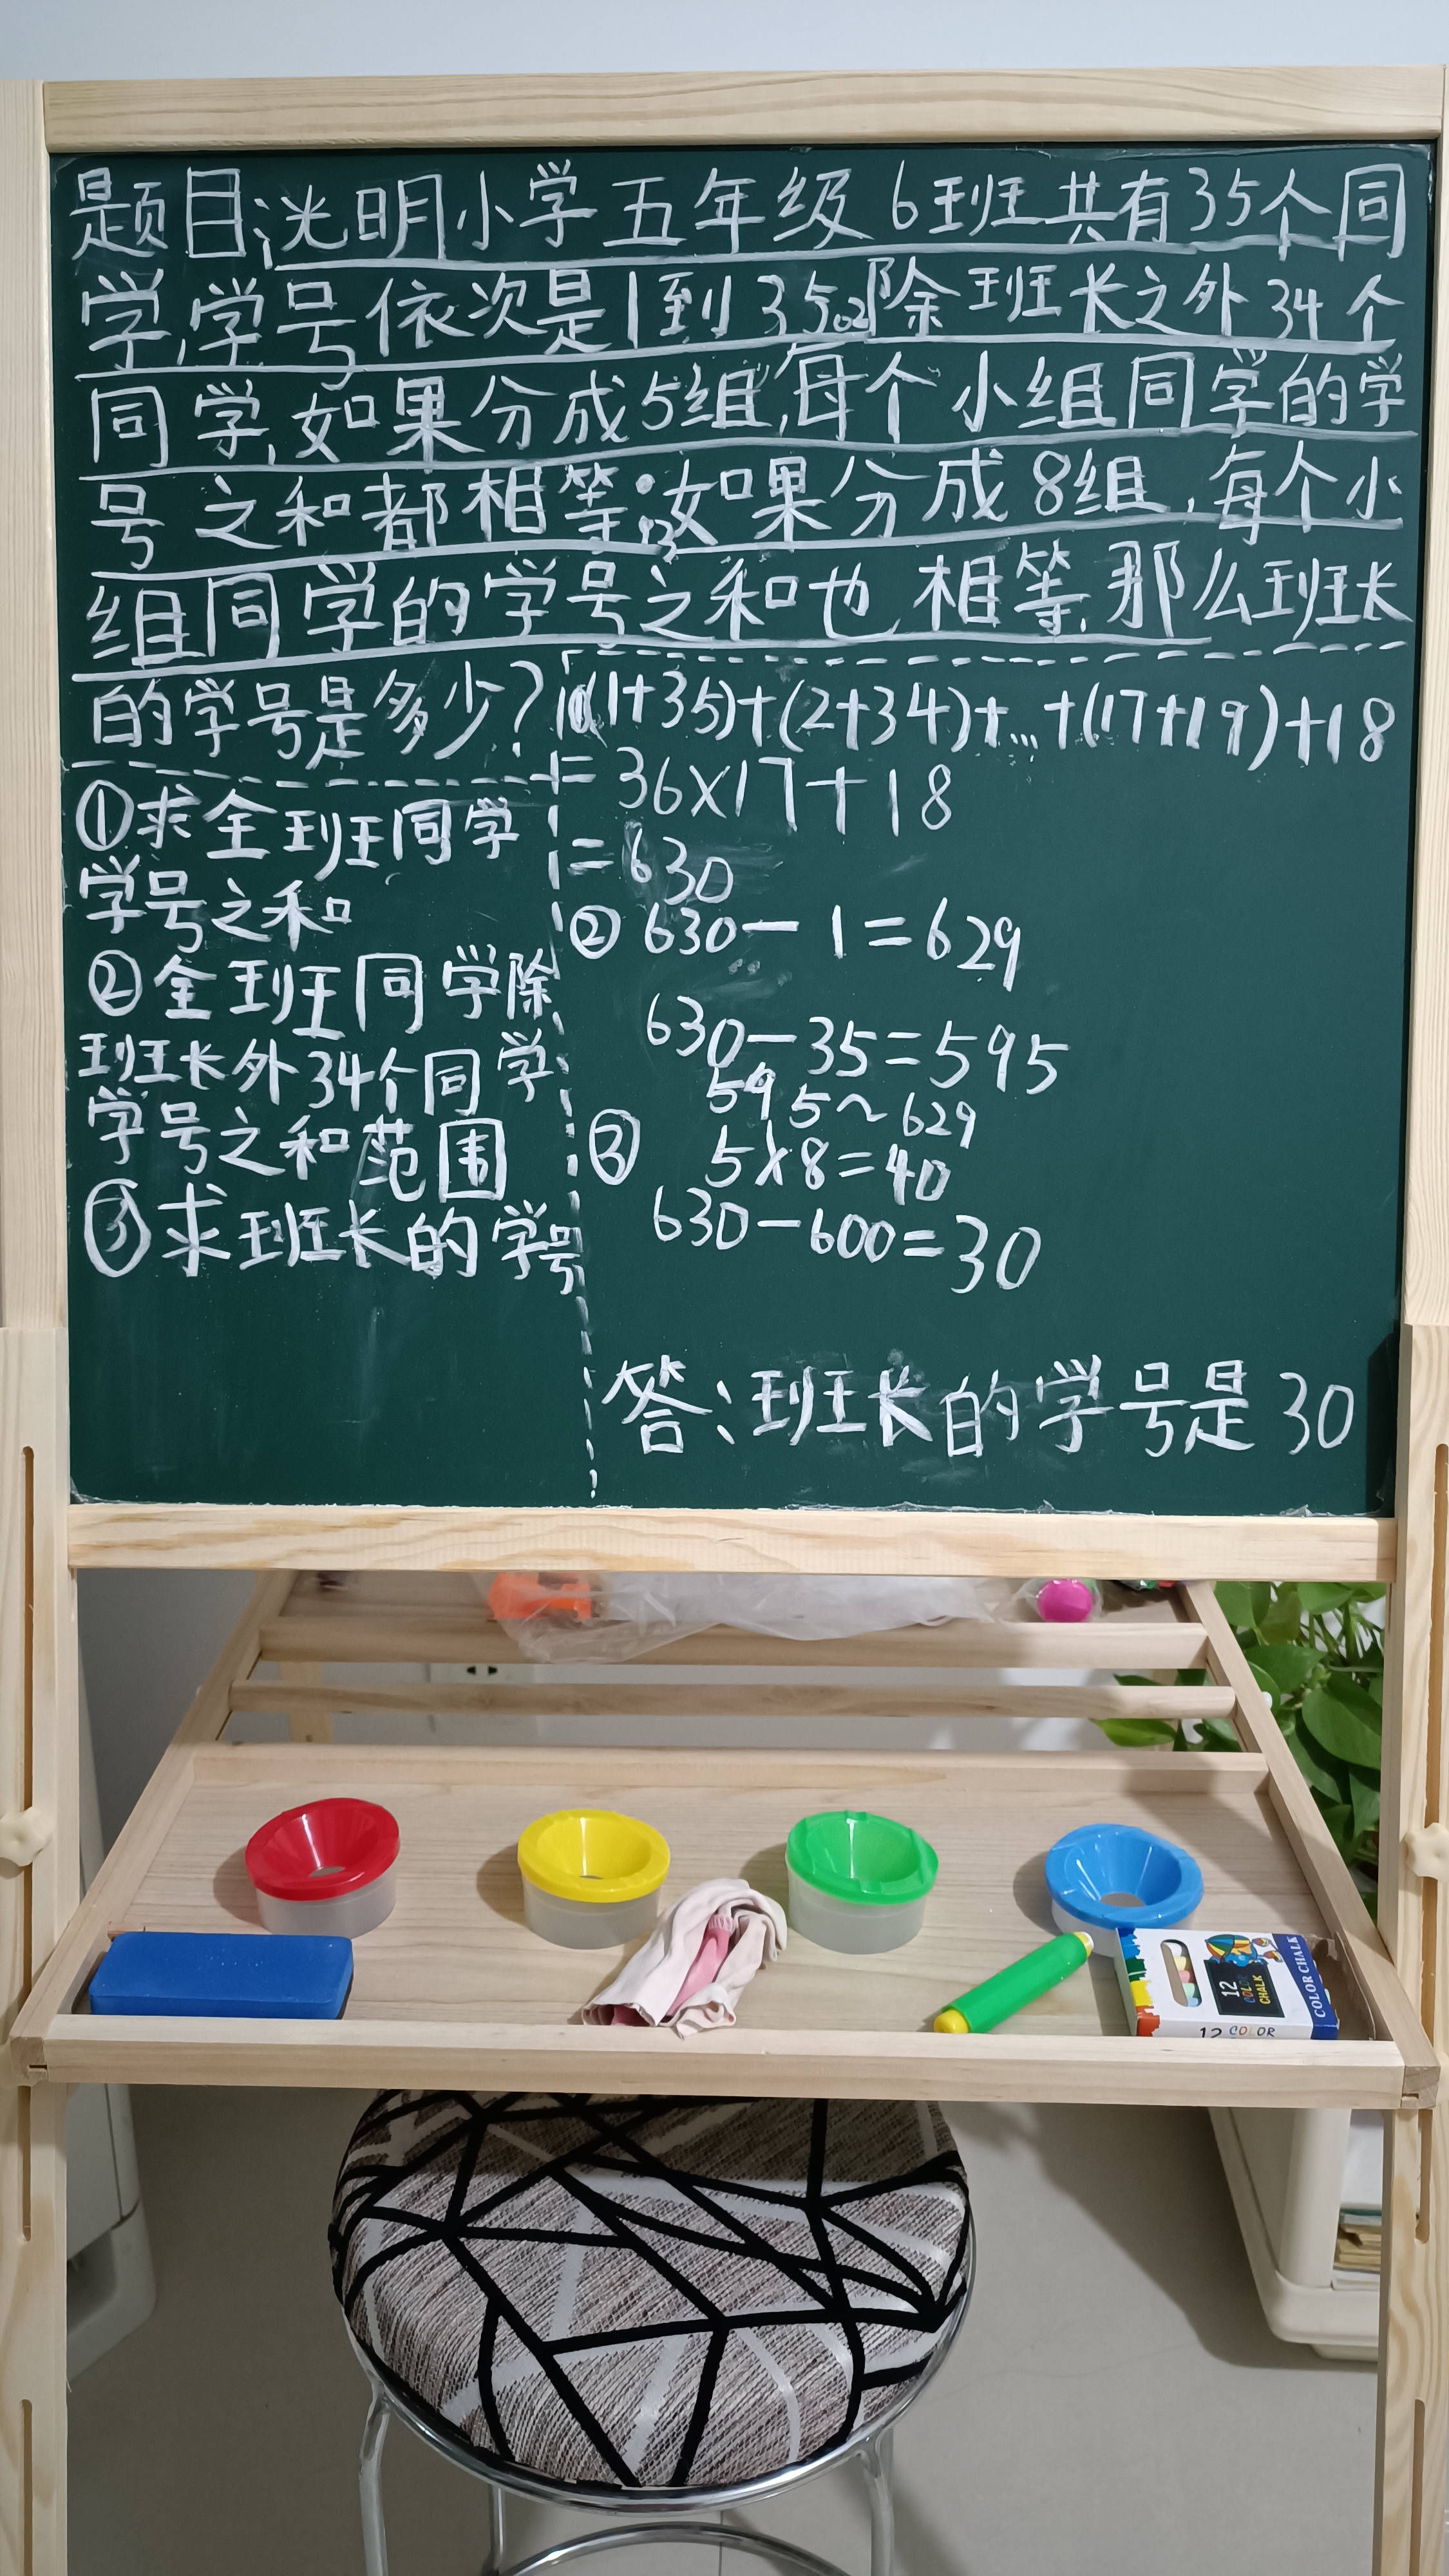 题目:光明小学五年级6班共有35个同
学,学号依次是1到35。除班长之外34个
同学,如果分成5组,每个小组同学的学
号之和都相等;如果分成8组,每个小
组同学的学号之和也相等,那么班长
的学号是多少?
①求全班同学
学号之和
②全班同学除
班长外34个同学
学号之和范围
③求班长的学号
①(1+35)+(2+34)+…+(17+19)+18
=36×17+18
=630
②630-1=629
630-35=595
595~629
③5×8=40
630-600=30
答:班长的学号是30
12 COLOR CHALK
COLOR CHALK
12 COLOR